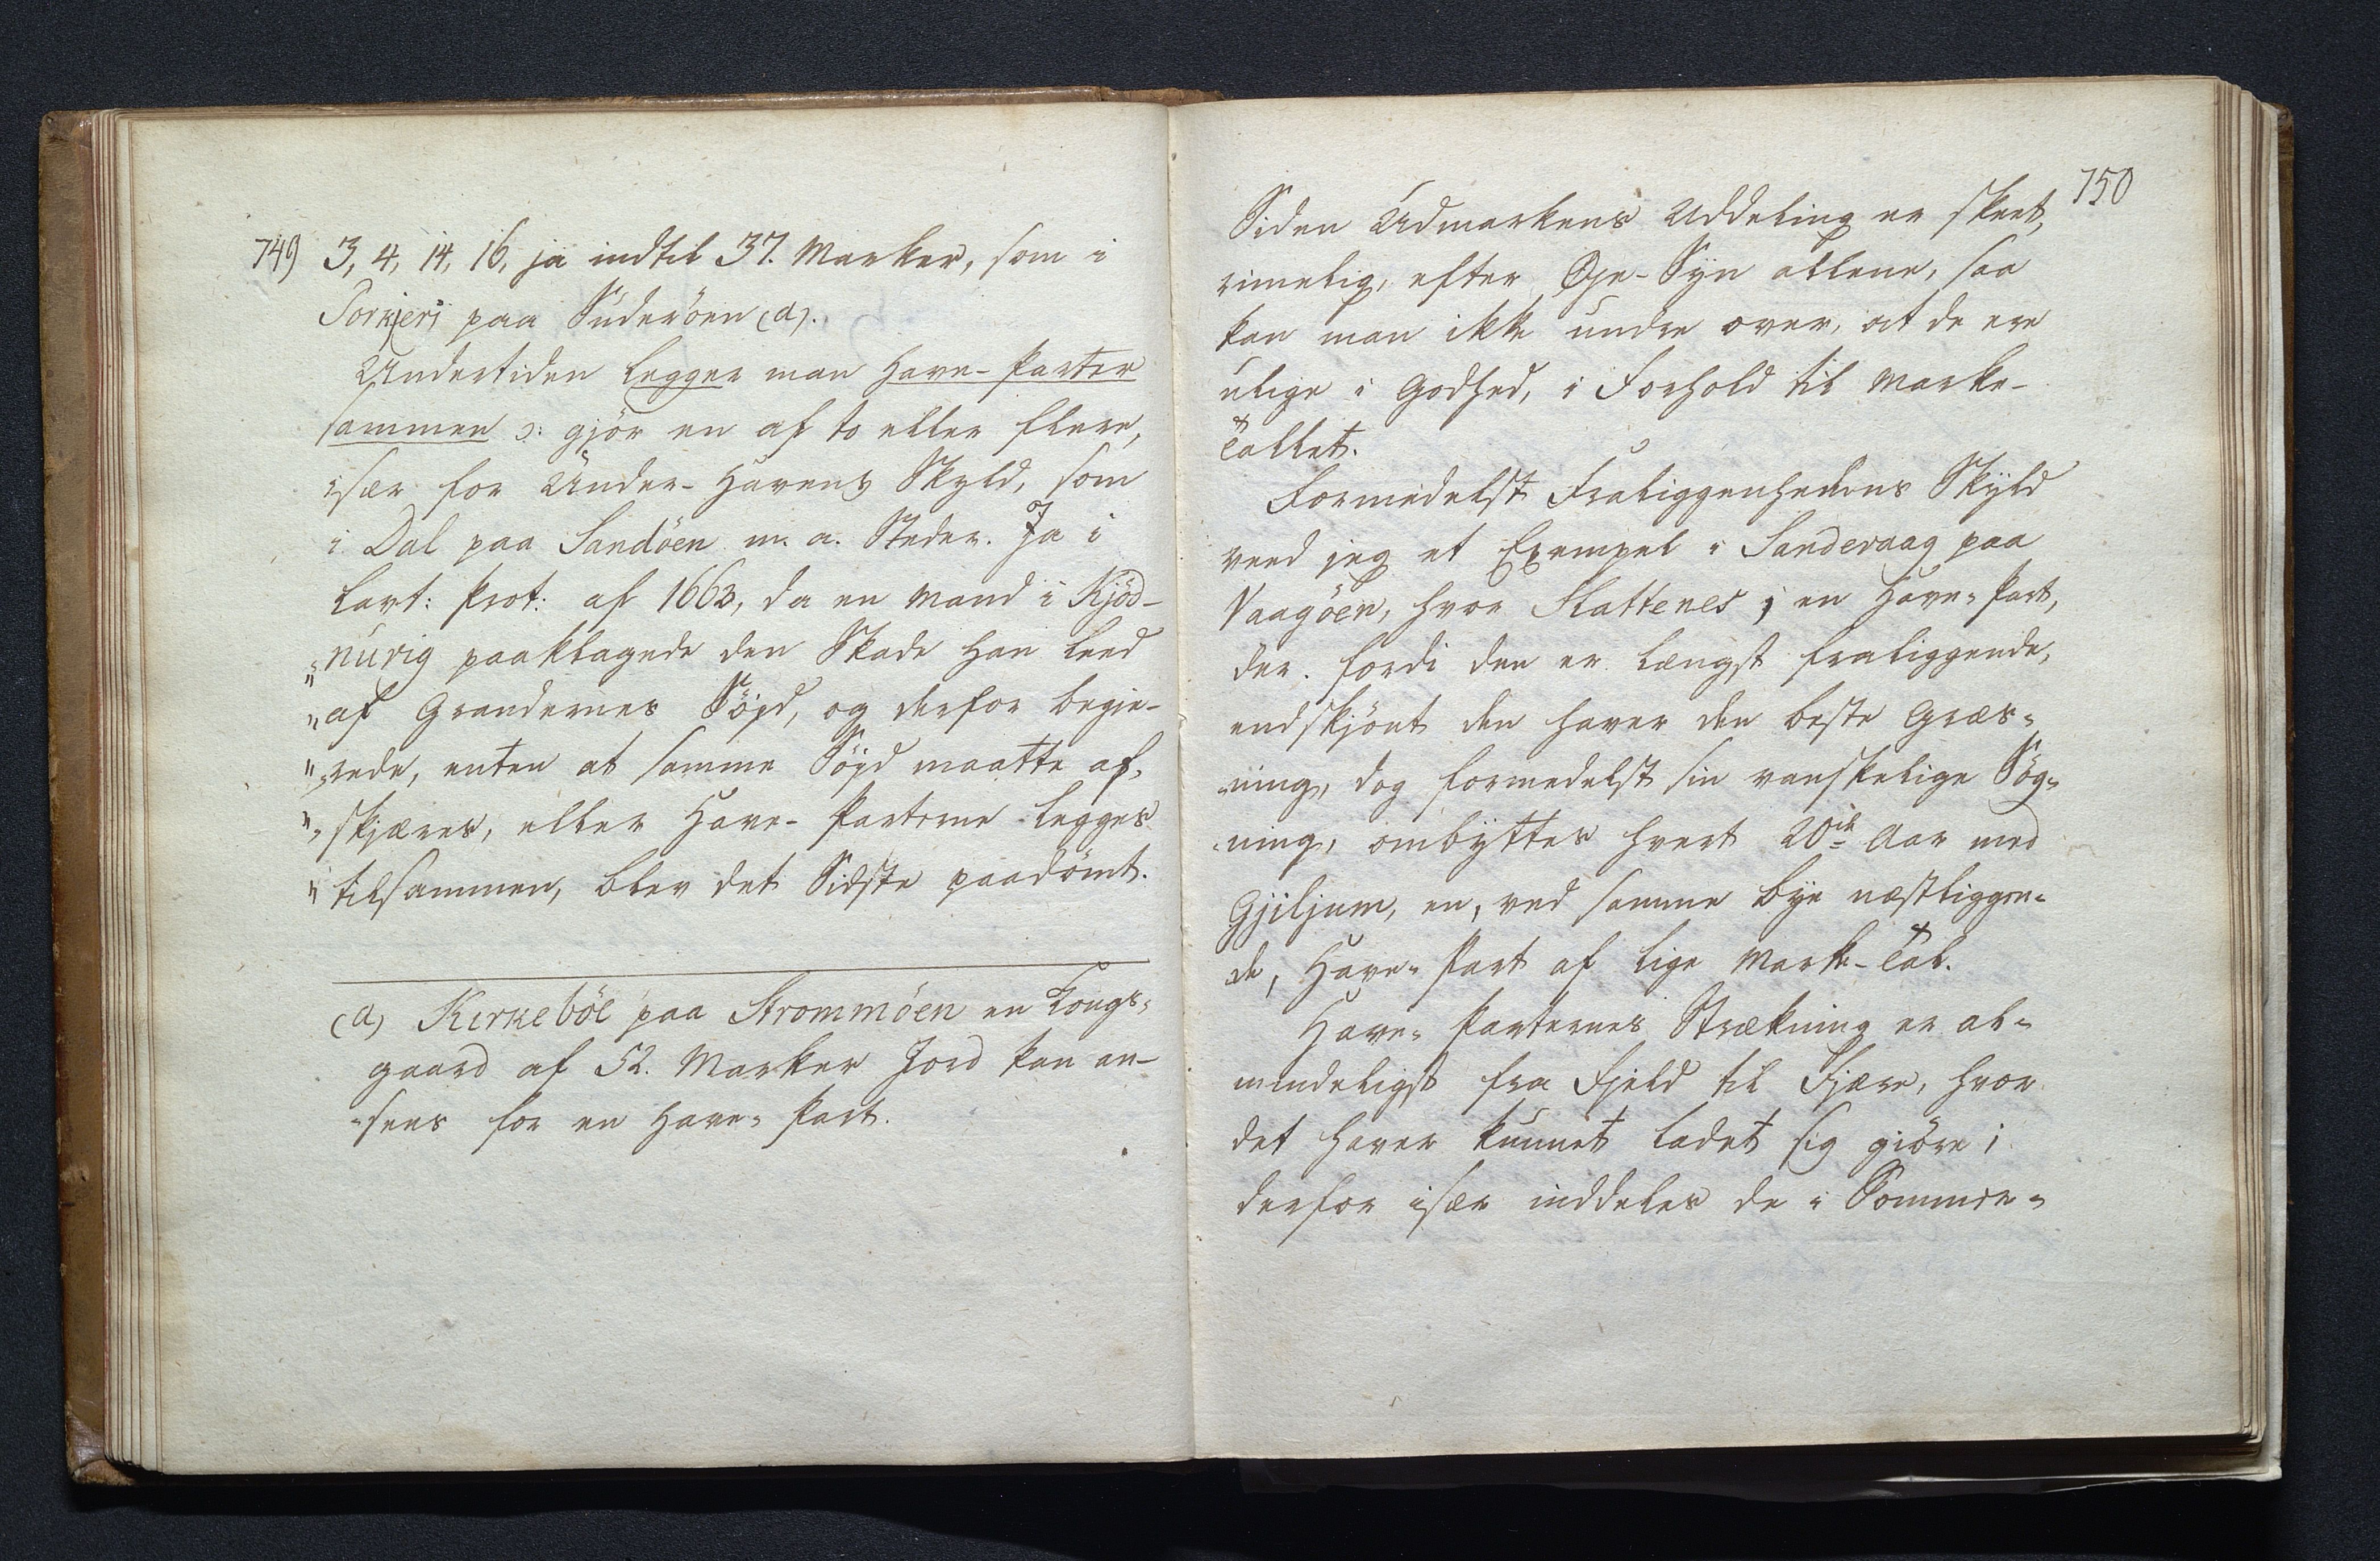 749 3, 4, 14, 16, ja indtil 37. Marker, som i
Porkjeri paa Suderöen (a).
Undertiden legger man Have-Parter
sammen ɔ: gjör en af to eller flere,
især for Under-Havens Skyld, som
i Dal paa Sandöen m. a. Steder. Ja i
Lavt: Prot: af 1663, da en Mand i Kjöd-
"nurig paaklagede den Skade han leed
"af Grandernes Söjd, og derfor begie-
"rede, enten at samme Söjd maatte af-
"skjæres, eller Have-Parterne legges
"tilsammen, blev det Sidste paadömt.
(a) Kirkeböe paa Strommöen en Kongs-
gaard af 52. Marker Jord kan an-
-sees for en Have-Part.
750
Siden Udmarkens Uddeling er skeet,
rimelig, efter Öje-Syn allene, saa
kan man ikke undre over, at de ere
ulige i Godhed, i Forhold til Marke-
Tallet.
Formedelst Fraliggenhedens Skyld
veed jeg et Exempel i Sandevaag paa
Vaagöen, hvor Slattenes, en Have-Part,
der. fordi den er længst fraliggende,
endskjönt den haver den beste Græs-
-ning, dog formedelst sin vanskelige Sög-
-ning, ombyttes hvert 20de Aar med
Gjiljum, en, ved samme Bye næstliggen-
de, Have-Part af lige Mark-Tal.
Have-Parternes Strækning er al-
mindeligst fra Fjeld til Fjære, hvor
det haver kunnet ladet sig giöre;
derfor især inddeles de i Sommer-